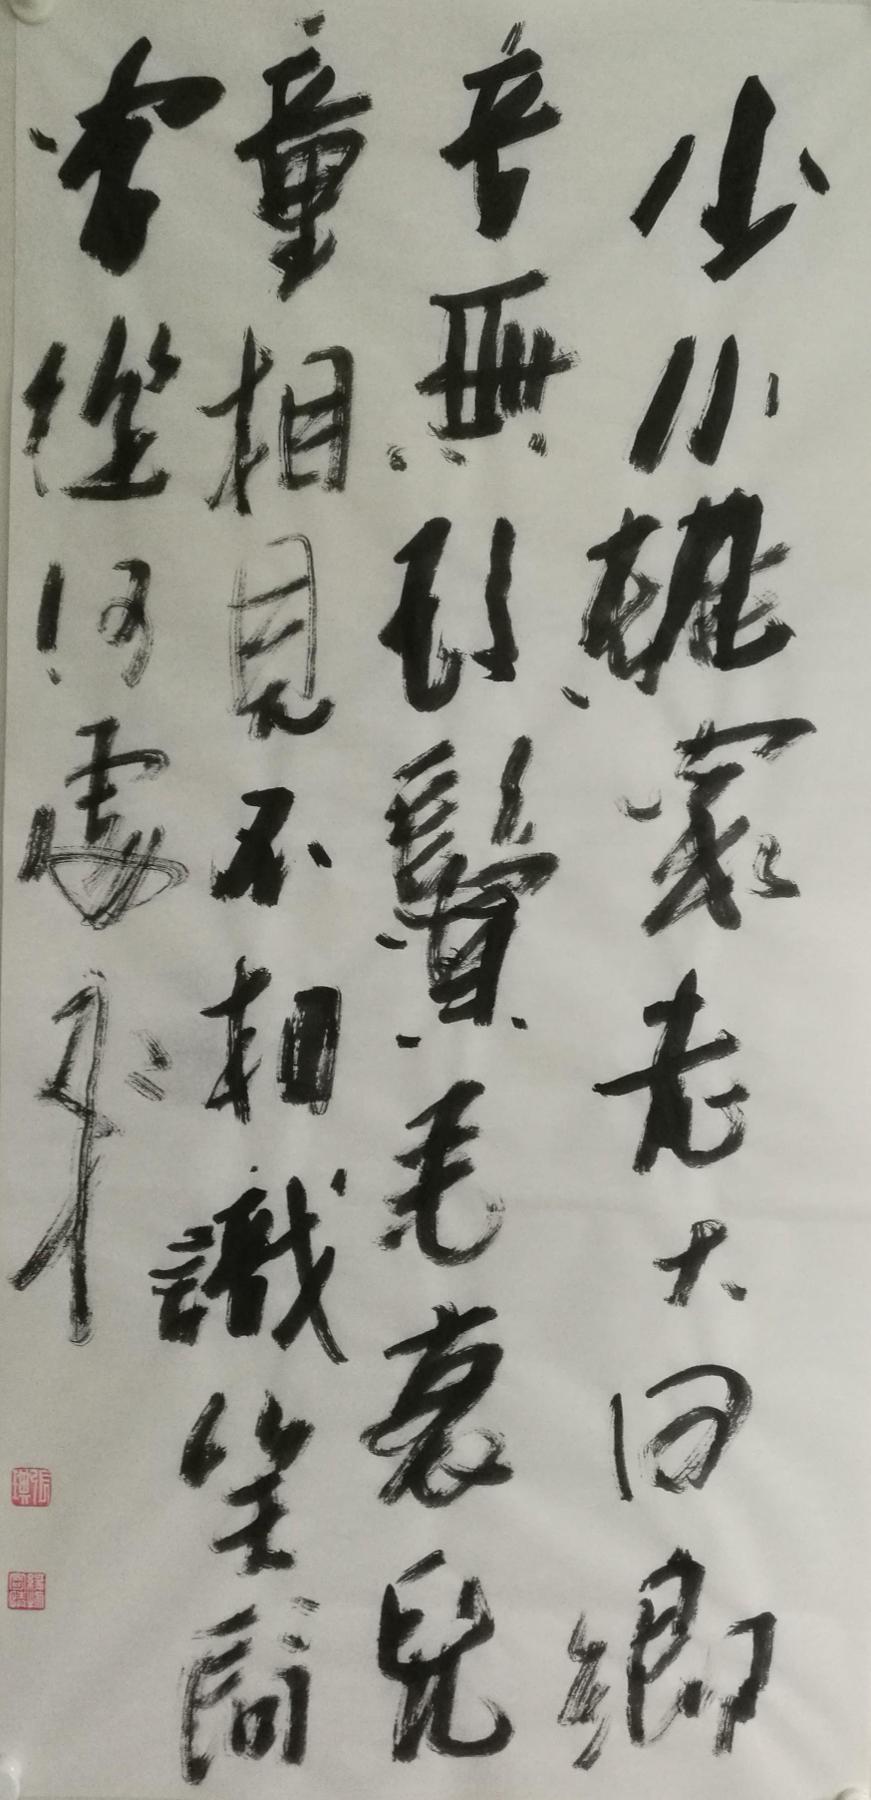 少小離家老大回鄉
音無改鬢毛衰兒
童相見不相識笑問
客從何處來